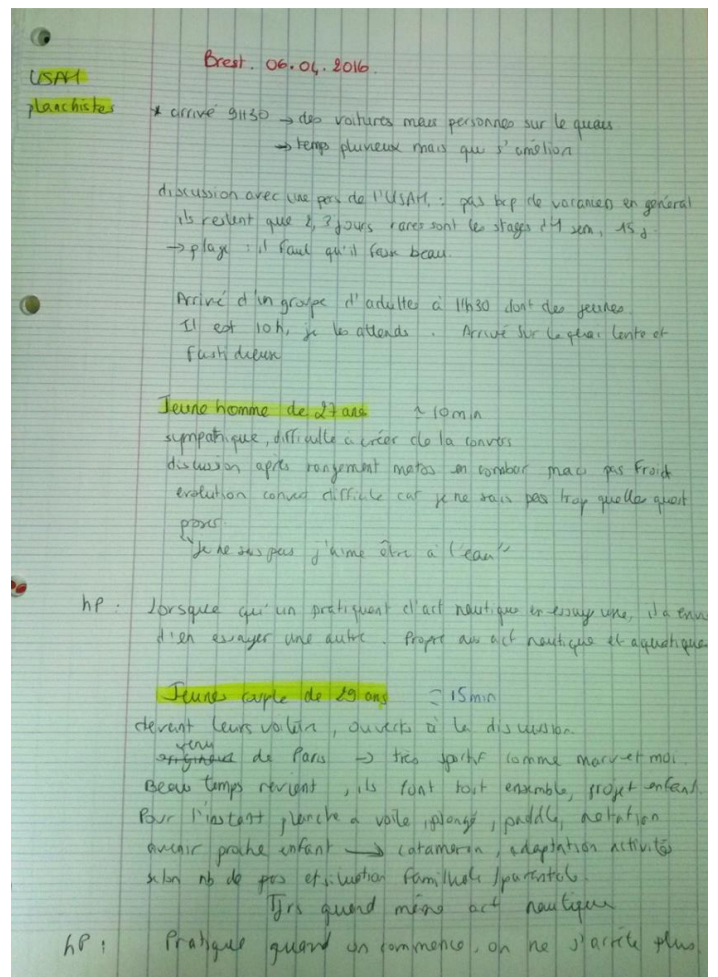 Brest. 06.04.2016.
USAM
planchistes
* arrivé 9H30 → des voitures mais personnes sur le quais
→ temps pluvieux mais qui s'amélior
discussion avec une pers de l'USAM, : pas bcp de vacances en général
ils restent que 2, 3 jours rares sont les stages d'1 sem, 15 j.
→ plage : il faut qu'il fasse beau.
Arrivé d'un groupe d'adultes à 11h30 dont des jeunes.
Il est 10h, je les attends. Arrivé sur le quai lente et
fastidieux
Jeune homme de 27 ans ~ 10min
sympathique, difficulté a créer de la convers
discussion après rangement matos en combar mais pas froid
evolution convers difficile car je ne sais pas trop quelles quest
poser.
"Je ne sais pas j'aime être à l'eau"
hP : Lorsque qu'un pratiquant d'act nautique en essaye une, il a envie
d'en essayer une autre. Propre au act nautique et aquatique
Jeune couple de 29 ans = 15min
devant leurs voiture, ouverts à la discussion.
venu
de Paris → très sportif comme marc et moi.
Beau temps revient, ils font tout ensemble, projet enfant.
Pour l'instant planche a voile, plongé, paddle, natation
avenir proche enfant → catamaran, adaptation activités
selon nb de pers et situation familiale / parentale.
Tjrs quand même act nautique
hP : Pratique quand on commence, on ne s'arrête plus.